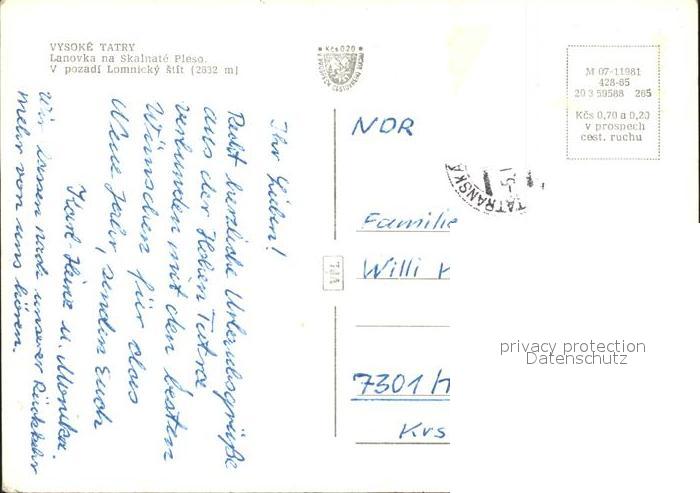 VYSOKÉ TATRY
Lanovka na Skalnaté Pleso.
V pozadí Lomnický štít (2632 m)
Kčs 0,20
M 07-11981
428-65
20 3 59588 265
Kčs 0,70 a 0,20
v prospech
cest. ruchu
TATRANSKÁ
NDR
Familie
Willi
7301/H
Krs
Ihr Lieben!
Recht herzliche Urlaubsgrüße
aus der Hohen Tatra
verbunden mit den besten
Wünschen für das
Neue Jahr, senden Euch
Karl-Heinz u. Monika.
Wir lassen nach unserer Rückkehr
mehr von uns hören.
privacy protection
Datenschutz